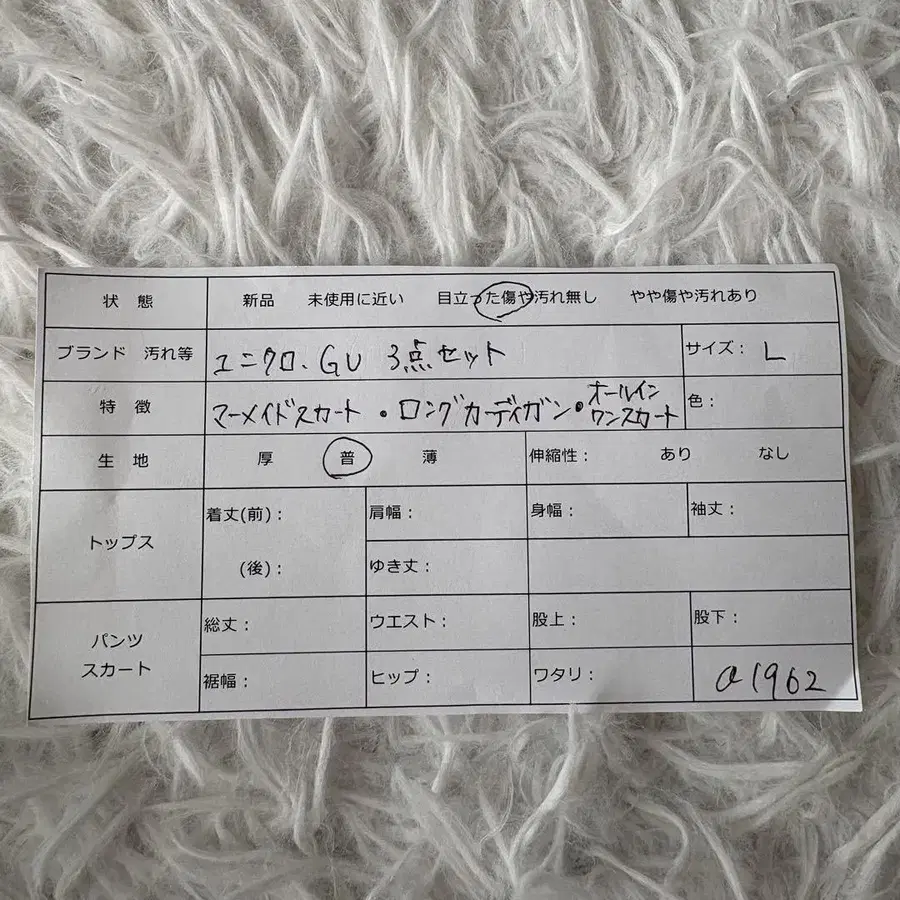 状 態 新品 未使用に近い 目立った傷や汚れ無し やや傷や汚れあり
ブランド 汚れ等 ユニクロ、GU 3点セット サイズ: L
特 徴 マーメイドスカート・ロングカーディガン・オールインワンスカート 色:
生 地 厚 普 薄 伸縮性: あり なし
トップス 着丈(前): 肩幅: 身幅: 袖丈:
(後): ゆき丈:
パンツ スカート 総丈: ウエスト: 股上: 股下:
裾幅: ヒップ: ワタリ: a1962